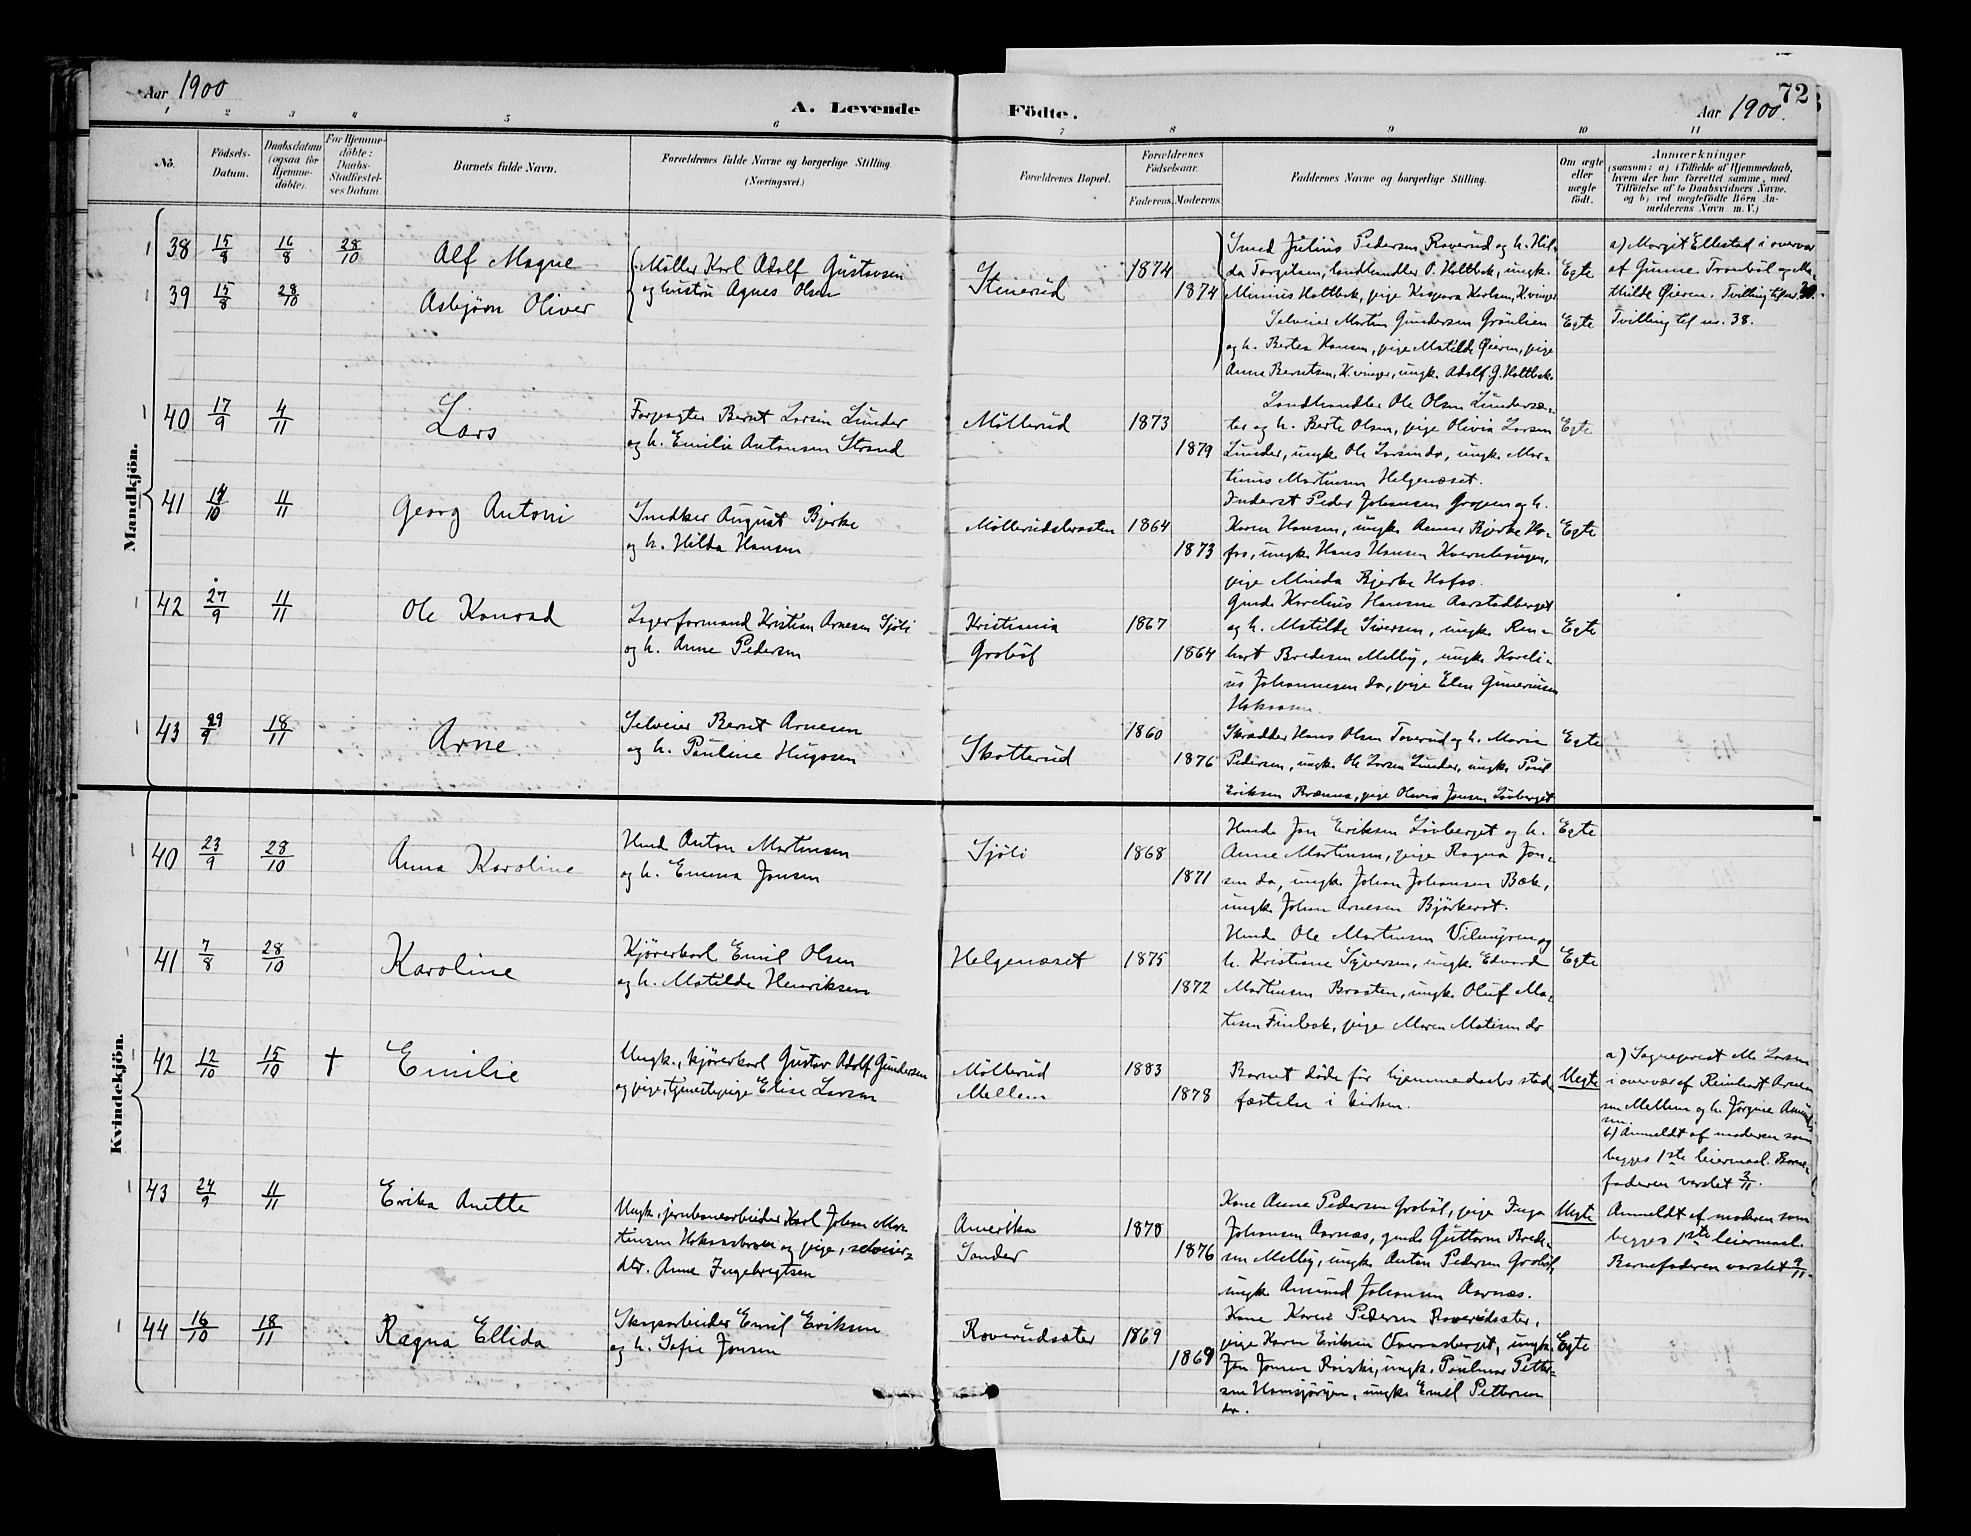 Aar 1900
A. Levende
Födte.
Aar 1900.
72
1 2 3 4 5 6 7 8 9 10 11
No.
Födsels-
Datum.
Daabsdatum
(ogsaa for
Hjemme-
döbte).
For Hjemme-
döbte:
Daabs-
Stadfæstel-
ses Datum.
Barnets fulde Navn.
Forældrenes fulde Navne og borgerlige Stilling
(Næringsvei.)
Forældrenes Bopæl.
Forældrenes
Födselsaar.
Faderens. Moderens.
Faddernes Navne og borgerlige Stilling.
Om ægte
eller
uægte
födt.
Anmærkninger
(saasom: a) i Tilfælde af Hjemmedaab,
hvem der har forrettet samme, med
Tilföielse af to Daabsvidners Navne.
og b) ved uægtefödte Börn An-
melderens Navn m. V.)
Mandkjön.
38 15/8 16/8 28/10 Alf Magne
Møller Karl Adolf Gustavsen
og hustru Agnes Olsen
Stenerud
1874
1874
Smed Julius Pedersen Roverud og h. Hil-
da Torgilsen, landhandler O. Holtbek, ungk.
Minius Holtbek, pige Kaspara Karlsen, K.vinger
Egte
a) Margit Ellestad i overvær
af Gunne Tronbøl og Ma-
thilde Øieren. Tvilling til nr. 39.
39 15/8 28/10 Asbjørn Oliver
Selveier Martin Gundersen Grønlien
og h. Bertea Hansen, pige Matilde Øieren, pige
Anna Berntsen, K.vinger, ungk. Adolf G. Holtbek.
Egte
Tvilling til nr. 38.
40 17/9 4/11 Lars
Forpagter Bernt Larsen Lunder
og h. Emilie Antonsen Strand
Møllerud
1873
1879
Landhandler Ole Olsen Lundersæ-
ter og h. Berte Olsen, pige Olivia Larsen
Lunder, ungk. Ole Larsen do, ungk. Mar-
tinius Martinsen Helgenæset.
Egte
41 /10 11/11 Georg Antoni
Snedker August Bjerke
og h. Hilda Hansen
Møllerudsbraaten
1864
1873
Inderst Peder Johansen Gropen og h.
Karen Hansen, ungk. Anner Bjerke Ho-
fos, ungk. Hans Hansen Kvernhaugen,
pige Minda Bjerke Hofos.
Egte
42 27/9 11/11 Ole Konrad
Lagerformand Kristian Arnesen Sjøli
og h. Anne Pedersen
Kristiania
Grobøl
1867
1864
Gmds Karelius Hansen Aarstadberget
og h. Matilde Siversen, ungk. Ren-
hart Bredesen Melby, ungk. Kareli-
us Johannesen do, pige Elen Guneriusen
Hokaasen.
Egte
43 29/9 18/11 Arne
Selveier Bernt Arnesen
og h. Pauline Hugosen
Skotterud
1860
1876
Skrædder Hans Olsen Toverud og h. Maria
Pedersen, ungk. Ole Larsen Lunder, ungk. Paul
Eriksen Brænna, pige Olivia Jensen Løvberget
Egte
Kvindekjön.
40 23/9 28/10 Anna Karoline
Hmd Anton Martinsen
og h. Emma Jonsen
Sjøli
1868
1871
Hmds Jon Eriksen Løvberget og h.
Anne Martinsen, pige Ragna Jon-
sen do, ungk. Johan Johansen Bæk,
ungk. Johan Arnesen Bjørkerot.
Egte
41 7/8 28/10 Karoline
Kjørerkarl Emil Olsen
og h. Matilde Henriksen
Helgenæset
1875
1872
Hmds Ole Martinsen Vilmyren og
h. Kristiane Syversen, ungk. Edvard
Martinsen Braaten, ungk. Oluf Ma-
tisen Finbek, pige Maren Matisen do
Egte
42 12/10 15/10 † Emilie
Ungk., kjørerkarl Gustav Adolf Gundersen
og pige, tjenestepige Elise Larsen
Møllerud
Mellem
1883
1878
Barnet døde før hjemmedaabs stad-
fæstelse i kirken.
Uegte
a) Sogneprest M. Larsen
i overvær af Reinhart Arne-
sen Mellem og h. Jørgine Amund-
sen.
b) Anmeldt af moderen som
begges 1ste leiermaal. Barne-
faderen varslet 2/11.
43 24/9 11/11 Erika Anette
Ungk., jernbanearbeider Karl Johan Mar-
tinsen Hokaasbroen og pige, selveier-
dtr. Anne Ingebrigtsen
Amerika
Sander
1878
1876
Kone Anne Pedersen Grobøl, pige Inga
Johansen Aarnæs, gmds Guttorm Brede-
sen Melby, ungk. Anton Pedersen Grobøl,
ungk. Amund Johansen Aarnæs.
Uegte
Anmeldt af moderen som
begges 1ste leiermaal.
Barnefaderen varslet 9/11.
44 16/10 18/11 Ragna Ellida
Skogsarbeider Emil Eriksen
og h. Sofie Jonsen
Roverudsæter
1869
1869
Kone Karen Pedersen Roverudsæter,
pige Karen Eriksen Overaasberget, ungk.
Jon Jonsen Roiski, ungk. Paulinar Petter-
sen Hamsjøryen, ungk. Emil Pettersen
do.
Egte